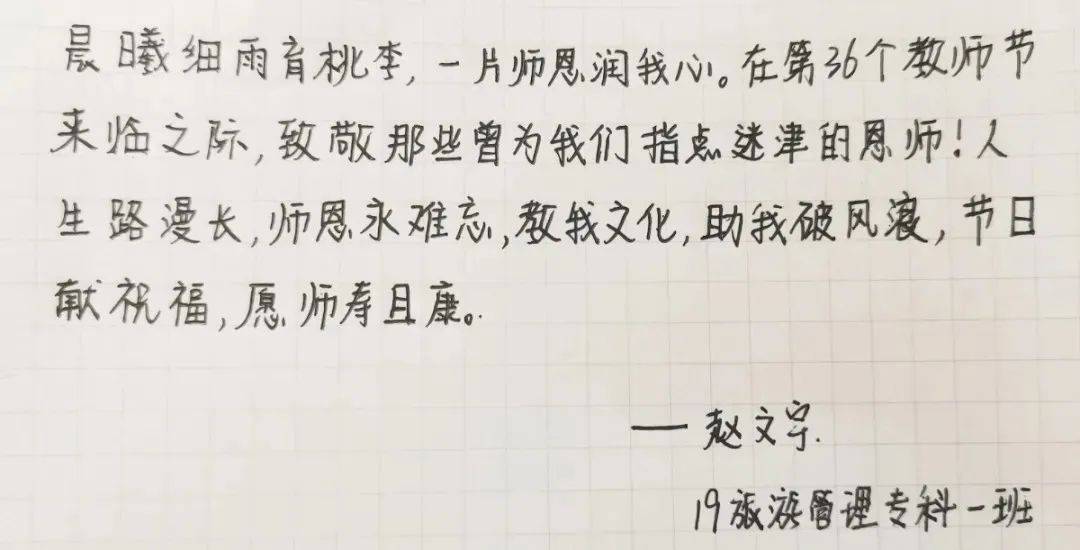 晨曦细雨育桃李，一片师恩润我心。在第36个教师节
来临之际，致敬那些曾为我们指点迷津的恩师！人
生路漫长，师恩永难忘，教我文化，助我破风浪，节日
献祝福，愿师寿且康。
——赵文宁.
19旅游管理专科一班